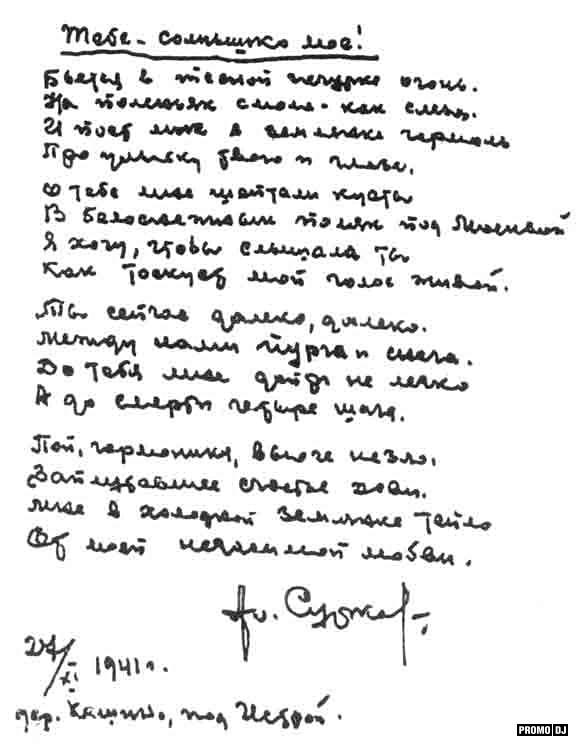 Тебе - солнышко мое!
Бьется в тесной печурке огонь.
На поленьях смола - как слеза.
И поет мне в землянке гармонь
Про улыбку твою и глаза.
О тебе мне шептали кусты
В белоснежных полях под Москвой
Я хочу, чтобы слышала ты
Как тоскует мой голос живой.
Ты сейчас далеко, далеко.
Между нами пурга и снега.
До тебя мне дойти не легко
А до смерти четыре шага.
Пой, гармоника, вьюге назло.
Заплутавшее счастье зови.
Мне в холодной землянке тепло
От моей негасимой любви.
Ал. Сурков.
27/XI 1941 г.
дер. Кашино, под Истрой.
PROMO DJ